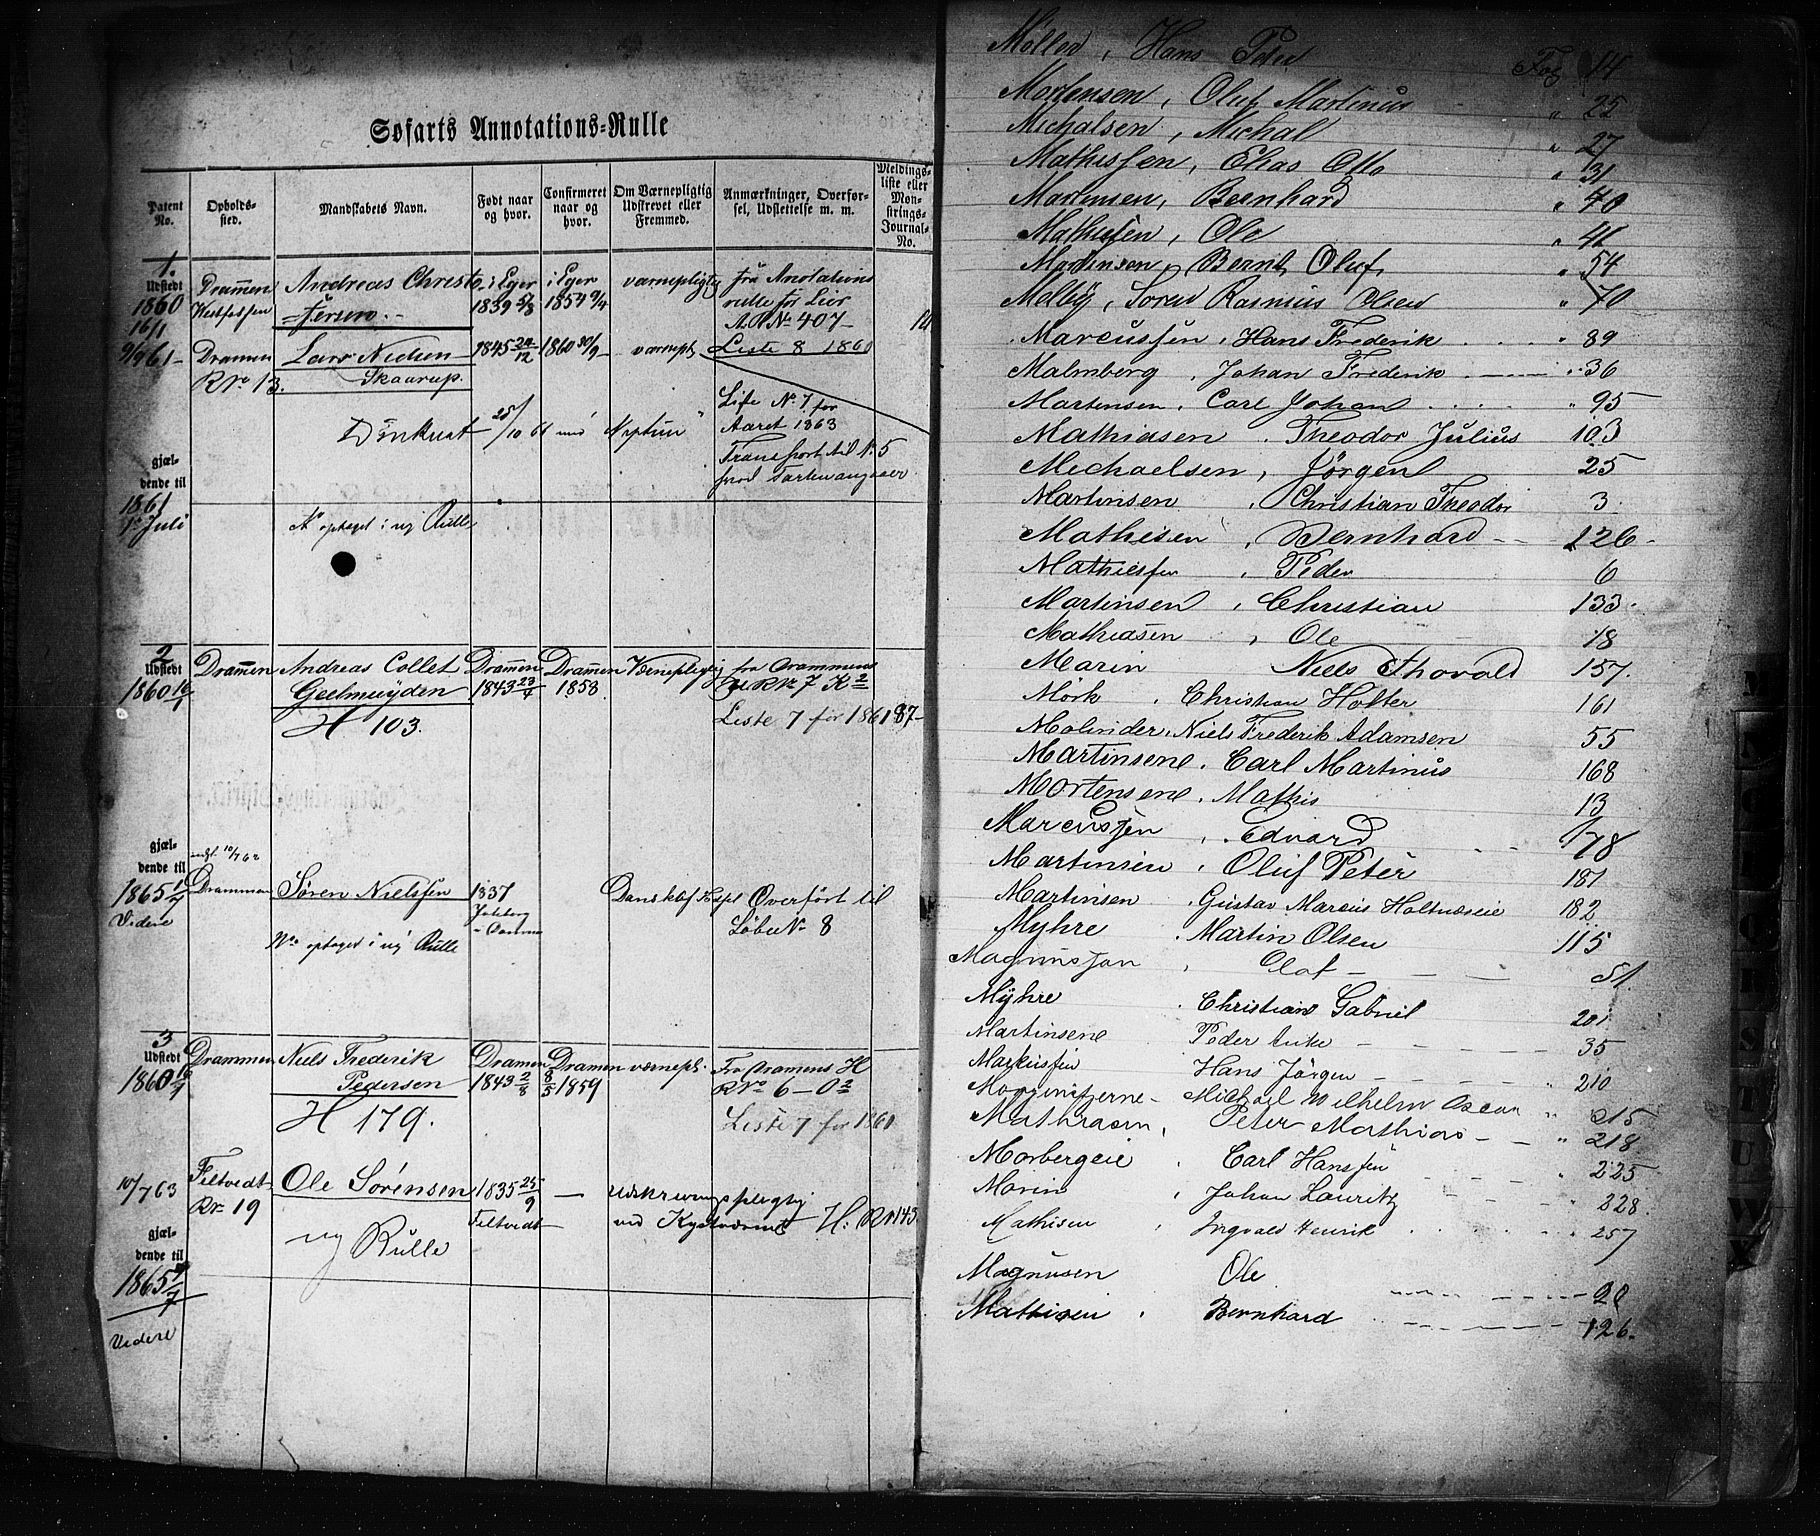 Søfarts Annotations-Rulle
Patent No.
Opholds-sted.
Mandskabets Navn.
Født naar og hvor.
Confirmeret naar og hvor.
Om Værnepligtig Udskrevet eller Fremmed.
Anmærkninger, Overførsel, Udslettelse m. m.
Meldings-liste eller Mønstrings-Journal-No.
1.
Udstedt
1860
16/1
Drammen
Andreas Christo
fersen
i Eger
1839 5/8
i Eger
1854 9/4
værnepligtig
fra Anotations
rulle for Lier
A.R No 407
9/9 61
Drammen
R No 13.
Lars Nielsen
Skaarup.
1845 24/12
1860 30/9
værnepl
Liste 8 1861
25/10 61 med Neptun
Liste No 7 for
Aaret 1863
Transport til No 5
gjæl-
dende til
1861
1ste Juli
No optaget i ny Rulle
2
Udstedt
1860 16/1
Drammen
Andreas Collet
Geelmuyden
H 103.
Drammen
1843 23/4
Drammen
1858.
Værnepligtig
fra Drammens
R No 7 K 2
Liste 7 for 1861
87
gjæl-
dende til
1865 1/7
Videre
10/7 62
Drammen
Søren Nielsen
1837
Overført til
Løbe No 8
No optaget i ny Rulle
3
Udstedt
1860 16/1
Drammen
Niels Frederik
Pedersen
H 179.
Drammen
1843 2/8
Drammen
8/5 1859
værnepl.
Fra Dramens H
R No 6 - O 2
Liste 7 for 1861
10/7 63
Feltvedt
R No 19
Ole Sørensen
1835 25/9
Feltvedt
udskrivningspligtig
ved Kystværnet
H: R No 143
ny Rulle
gjæl-
dende til
1865 1/7
Videre
Møller, Hans Peder Fol 14
Mortensen, Oluf Martinus " 25
Michalsen, Michal " 27
Mathissen, Elias Otto " 31
Mortensen, Bernhard " 40
Mathisen, Ole " 41
Martinsen, Bernt Oluf " 54
Melby, Søren Rasmus Olsen " 70
Marcussen, Hans Frederik " 89
Malmberg, Johan Frederik " 36
Martensen, Carl Johan " 95
Mathiasen, Theodor Julius 103
Michaelsen, Jørgen 25
Martinsen, Christian Theodor 3
Mathisen, Bernhard 126
Mathiesen, Peder 6
Martinsen, Christian 133
Mathiasen, Ole 18
Marin Niels Thorvald 157.
Mørk, Christian Holter 161
Molinder, Niels Frederik Adamsen 55
Martinsen, Carl Martinus 168
Mortensen, Mathis 13
Marcussen, Edvard 178
Martinsen, Oluf Peter 181
Martinsen, Gustav Marius 182
Myhre, Martin Olsen 115
Magnussen, Olaf 51
Myhre, Christian Gabriel 201
Martinsen Peder 35
Markussen Hans Jørgen 210
Morgenstjerne Michael Wilhelm Oscar " 215
Mathiasen, Peter Mathias " 218
Morberg, Carl Hanssen " 225
Morin, Johan Lauritz 228
Mathisen, Ingvald Henrik 257
Magnusen Ole 20
Mathisen, Bernhard 126.
M
U
W
X